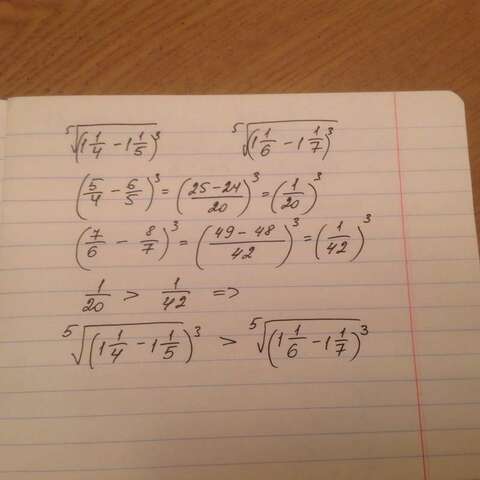 ⁵√(1 1/4 − 1 1/5)³  ⁵√(1 1/6 − 1 1/7)³
(5/4 − 6/5)³ = ((25 − 24)/20)³ = (1/20)³
(7/6 − 8/7)³ = ((49 − 48)/42)³ = (1/42)³
1/20 > 1/42 =>
⁵√(1 1/4 − 1 1/5)³ > ⁵√(1 1/6 − 1 1/7)³